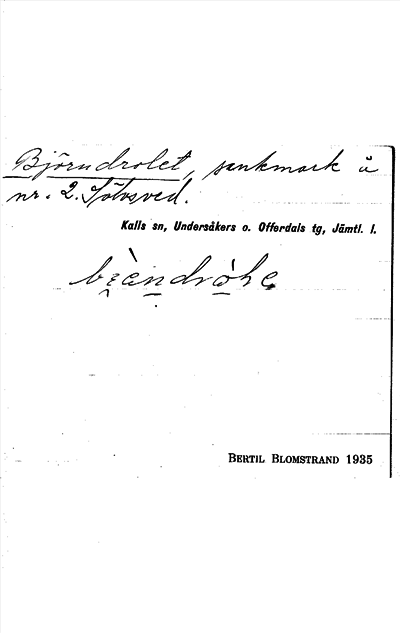 Björndrolet, sankmark å
nr. 2. Sölvsved.
Kalls sn, Undersåkers o. Offerdals tg, Jämtl. l.
BERTIL BLOMSTRAND 1935